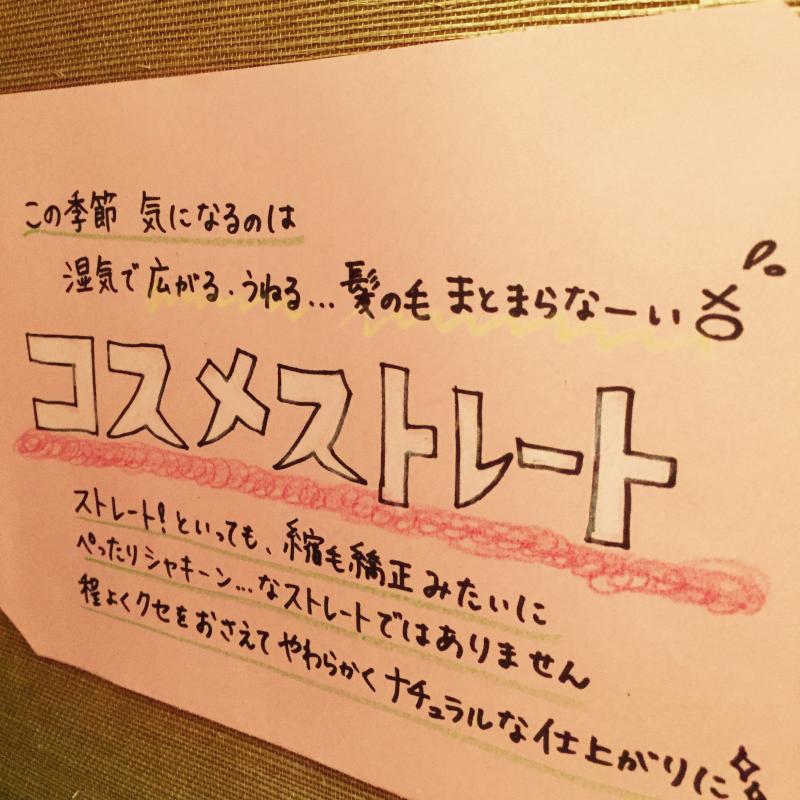 この季節 気になるのは
湿気で広がる・うねる...髪の毛まとまらなーい
コスメストレート
ストレート!といっても、縮毛矯正みたいに
ぺったりシャキーン...なストレートではありません
程よくクセをおさえてやわらかくナチュラルな仕上がりに